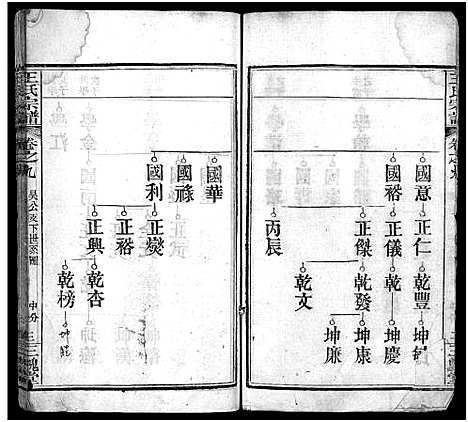 王氏宗譜
國意
正仁
乾豐
國裕
正儀
乾
坤慶
正傑
乾發
坤康
坤廉
乾文
丙辰
國華
國祿
國利
正燮
正裕
乾杏
正興
乾榜
王氏宗譜
卷之九
吴公支下世系圖
中分
三槐堂